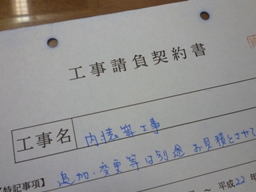 工事請負契約書
工事名 内装業工事
【特記事項】 追加・変更等は別途お見積とさせて
平成22年